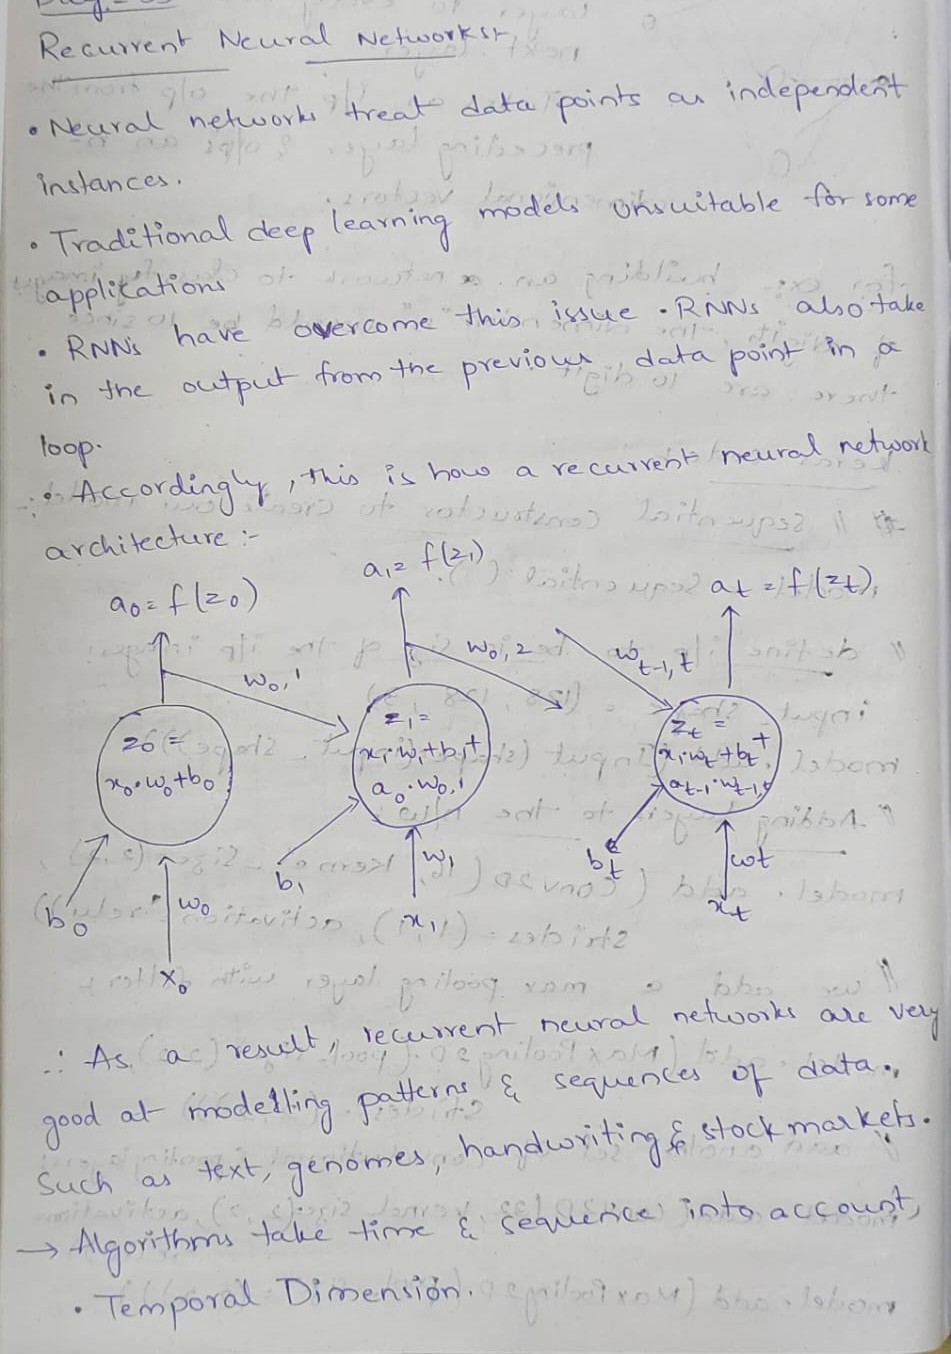 Recurrent Neural Networks:-
• Neural networks treat data points as independent
instances.
• Traditional deep learning models unsuitable for some
applications
• RNNs have overcome this issue. RNNs also take
in the output from the previous data point in a
loop.
• Accordingly, this is how a recurrent neural network
architecture :-
a0 = f(z0)
a1 = f(z1)
at = f(zt)
w0,1
w0,2
wt-1,t
z0 =
x0·w0+b0
z1 =
x1·w1+b1+
a0·w0,1
zt =
x1·wt+bt+
at-1·wt-1,t
b0
w0
x0
b1
w1
x1
bt
wt
xt
∴ As a result, recurrent neural networks are very
good at modelling patterns & sequences of data.
Such as text, genomes, handwriting & stock markets.
→ Algorithms take time & sequence into account,
• Temporal Dimension.